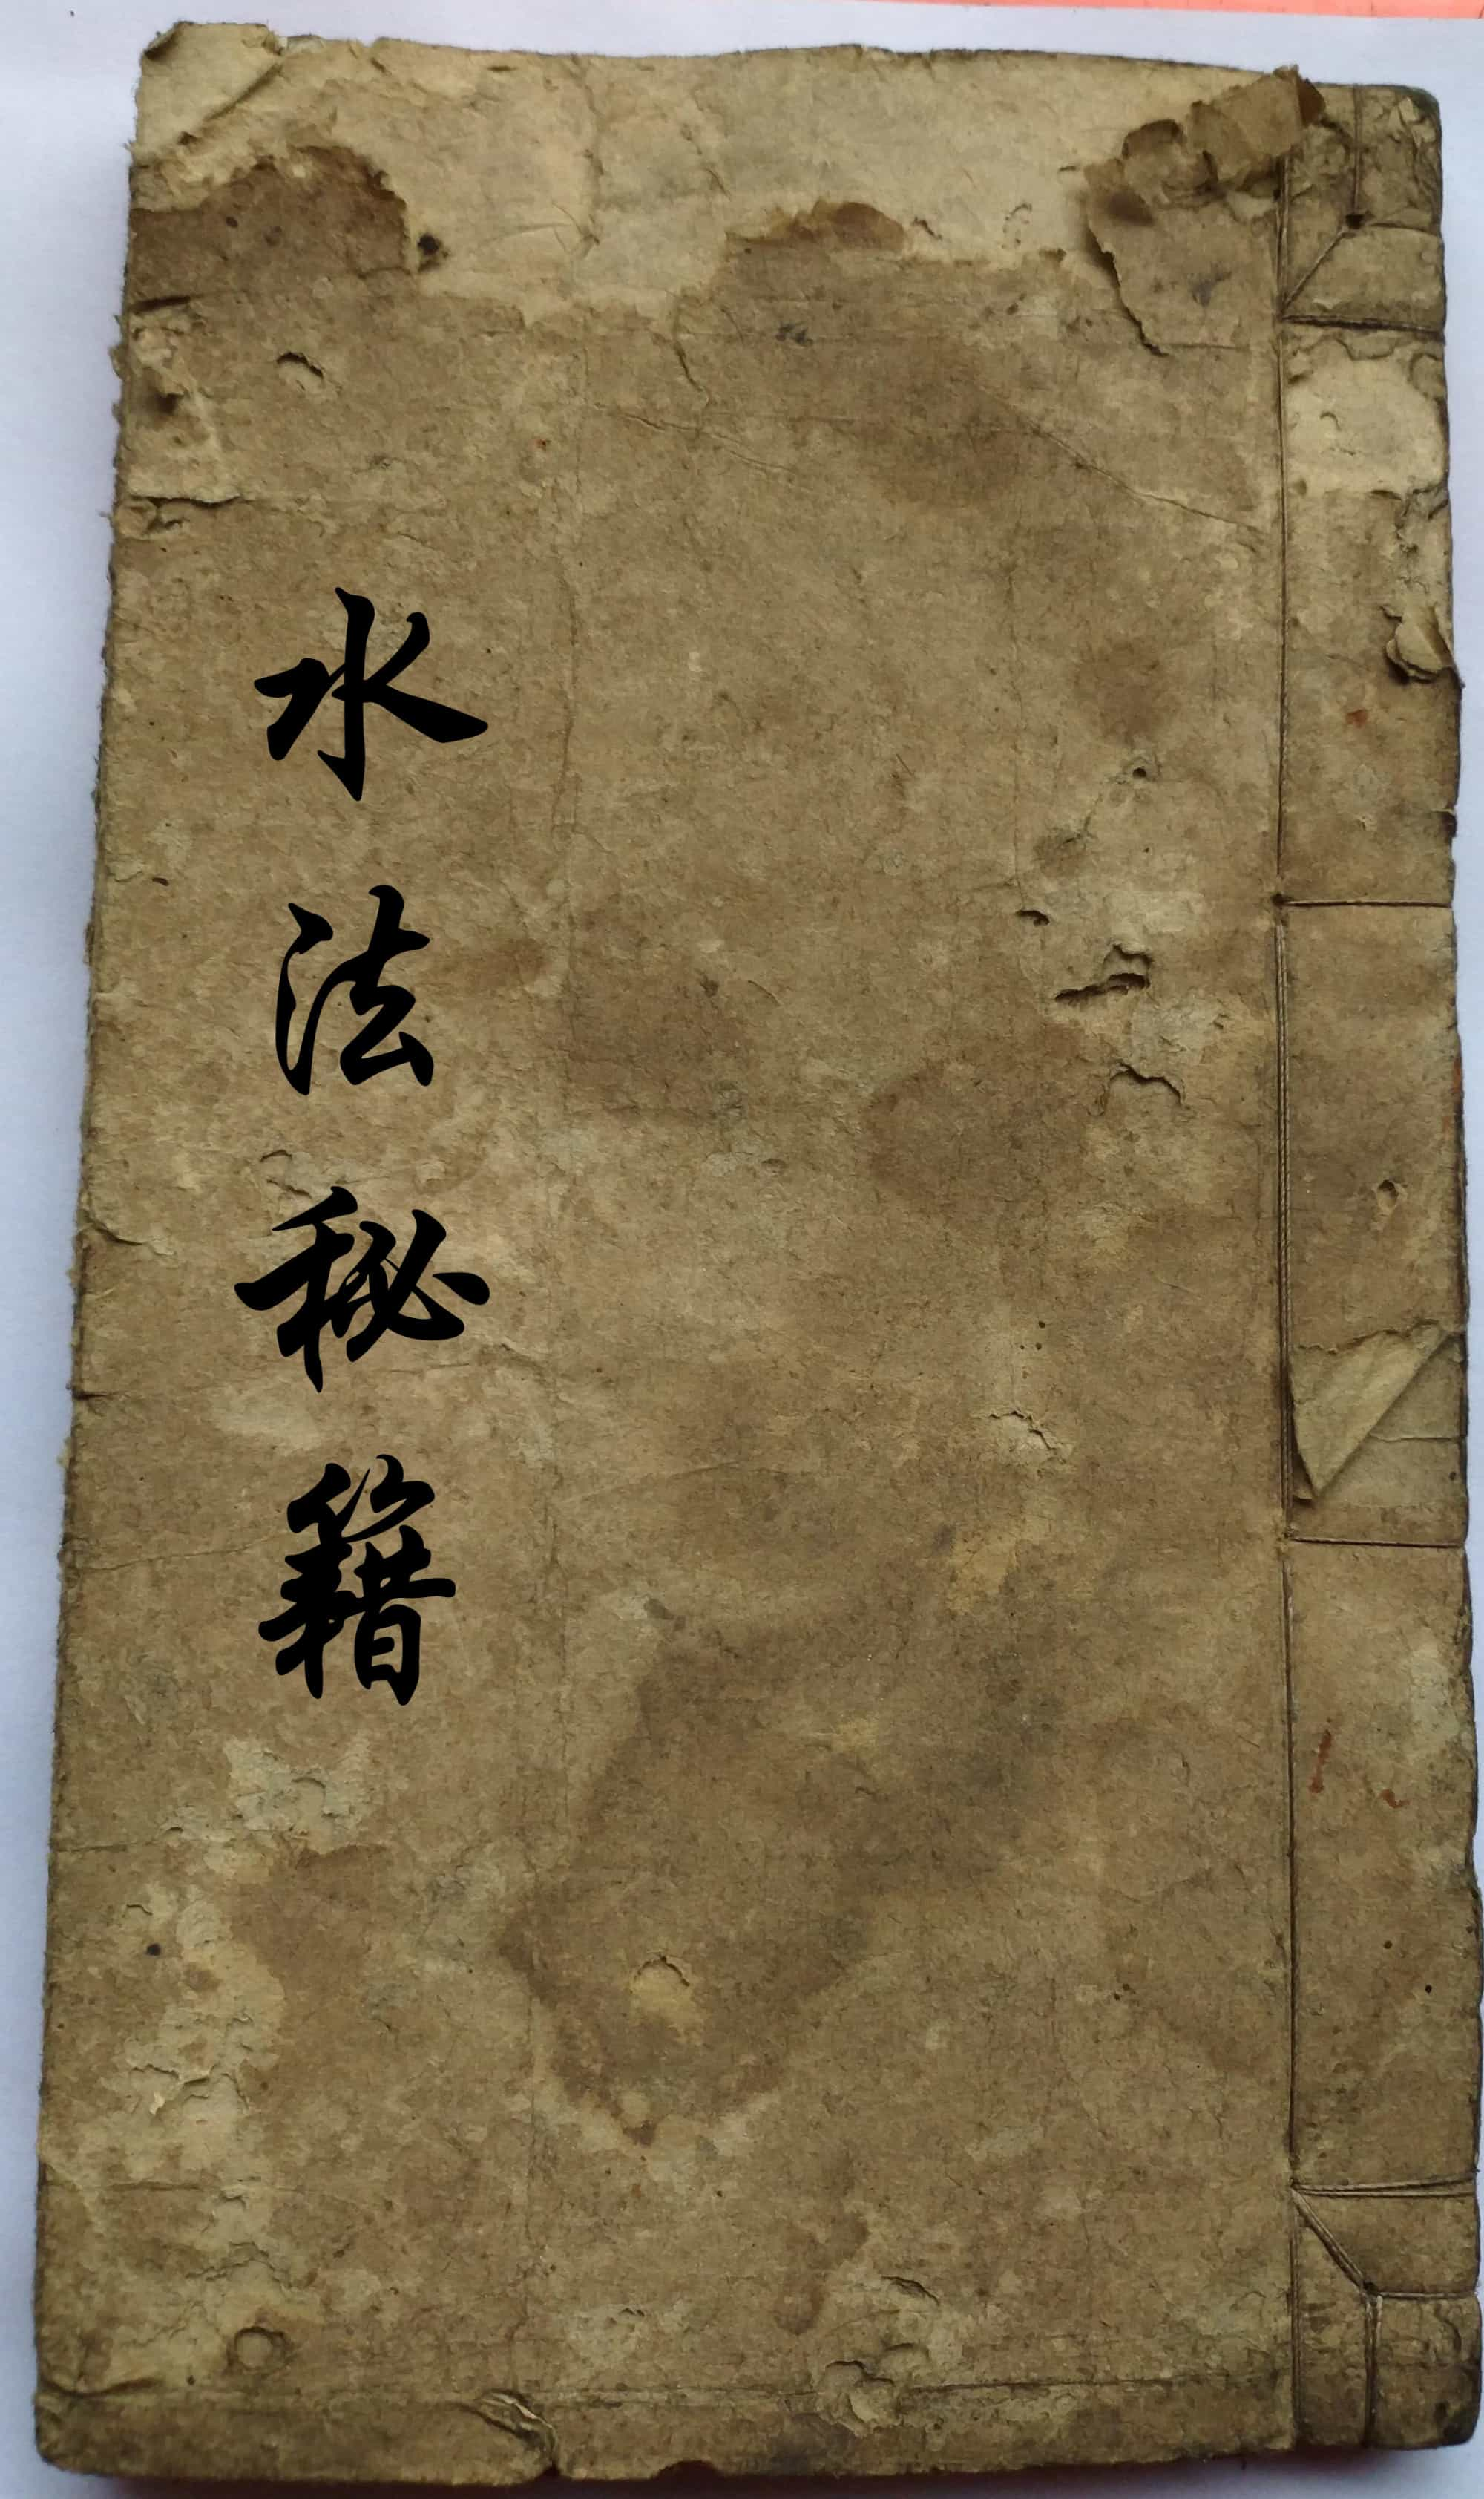 水法秘籍